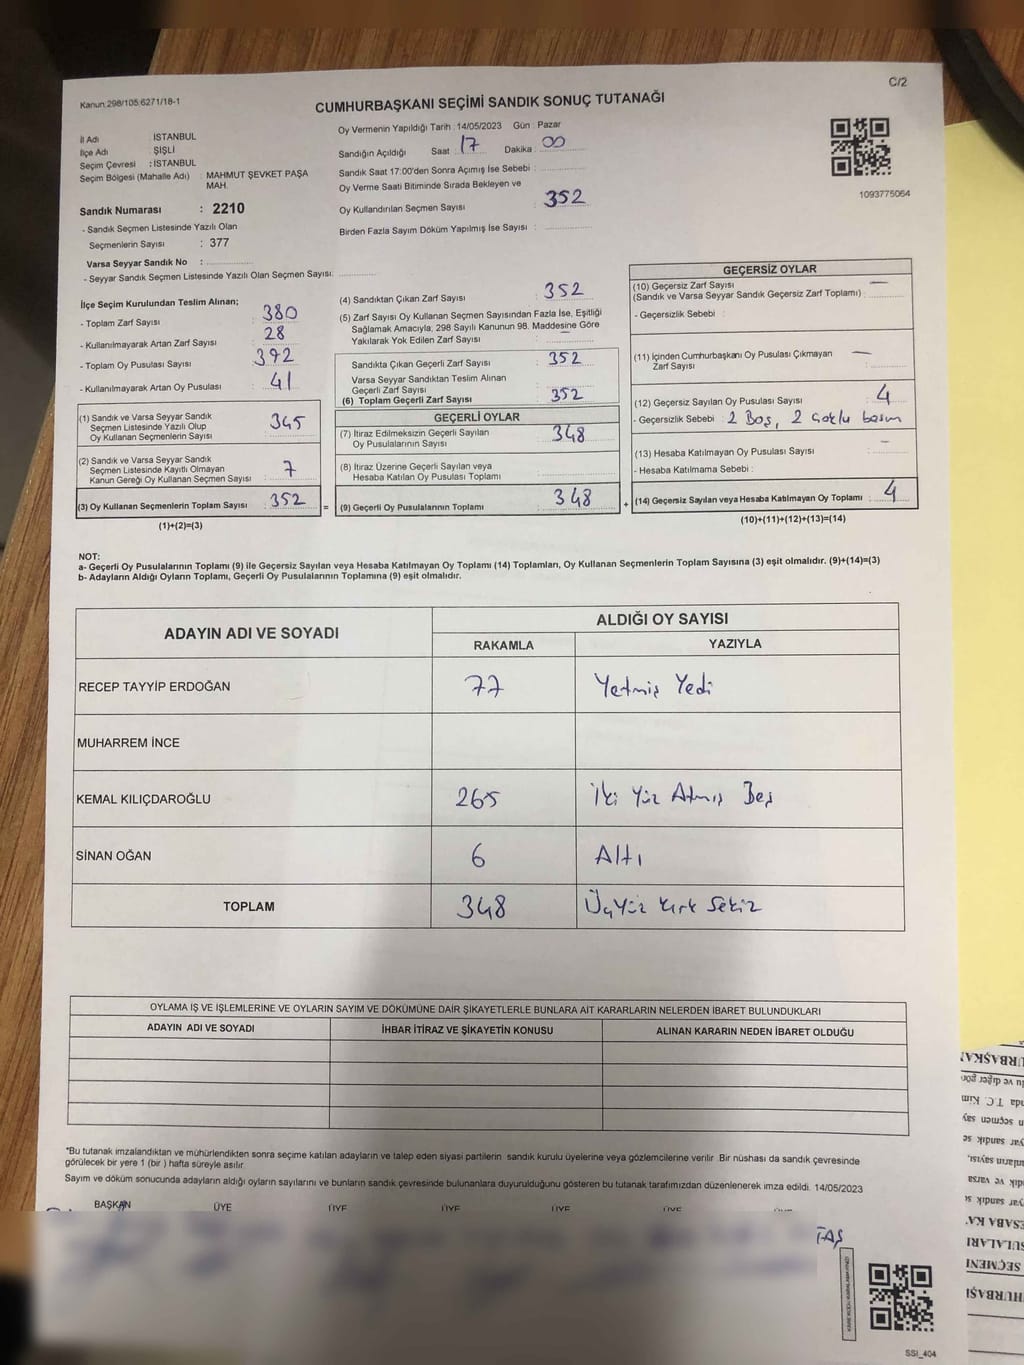 C/2
Kanun:298/105;6271/18-1
CUMHURBAŞKANI SEÇİMİ SANDIK SONUÇ TUTANAĞI
İl Adı : İSTANBUL
İlçe Adı : ŞİŞLİ
Seçim Çevresi : İSTANBUL
Seçim Bölgesi (Mahalle Adı) : MAHMUT ŞEVKET PAŞA
MAH.
Sandık Numarası : 2210
- Sandık Seçmen Listesinde Yazılı Olan
Seçmenlerin Sayısı : 377
Varsa Seyyar Sandık No :
- Seyyar Sandık Seçmen Listesinde Yazılı Olan Seçmen Sayısı:
Oy Vermenin Yapıldığı Tarih : 14/05/2023 Gün : Pazar
Sandığın Açıldığı Saat : 17 Dakika : 00
Sandık Saat 17:00'den Sonra Açımış İse Sebebi :
Oy Verme Saati Bitiminde Sırada Bekleyen ve
Oy Kullandırılan Seçmen Sayısı : 352
Birden Fazla Sayım Döküm Yapılmış İse Sayısı :
1093775064
İlçe Seçim Kurulundan Teslim Alınan;
- Toplam Zarf Sayısı : 380
- Kullanılmayarak Artan Zarf Sayısı : 28
- Toplam Oy Pusulası Sayısı : 392
- Kullanılmayarak Artan Oy Pusulası : 41
(1) Sandık ve Varsa Seyyar Sandık
Seçmen Listesinde Yazılı Olup
Oy Kullanan Seçmenlerin Sayısı : 345
(2) Sandık ve Varsa Seyyar Sandık
Seçmen Listesinde Kayıtlı Olmayan
Kanun Gereği Oy Kullanan Seçmen Sayısı : 7
(3) Oy Kullanan Seçmenlerin Toplam Sayısı : 352
(1)+(2)=(3)
=
(4) Sandıktan Çıkan Zarf Sayısı : 352
(5) Zarf Sayısı Oy Kullanan Seçmen Sayısından Fazla İse, Eşitliği
Sağlamak Amacıyla, 298 Sayılı Kanunun 98. Maddesine Göre
Yakılarak Yok Edilen Zarf Sayısı :
Sandıkta Çıkan Geçerli Zarf Sayısı : 352
Varsa Seyyar Sandıktan Teslim Alınan
Geçerli Zarf Sayısı :
(6) Toplam Geçerli Zarf Sayısı : 352
GEÇERLİ OYLAR
(7) İtiraz Edilmeksizin Geçerli Sayılan
Oy Pusulalarının Sayısı : 348
(8) İtiraz Üzerine Geçerli Sayılan veya
Hesaba Katılan Oy Pusulası Toplamı :
(9) Geçerli Oy Pusulalarının Toplamı : 348
+
GEÇERSİZ OYLAR
(10) Geçersiz Zarf Sayısı —
(Sandık ve Varsa Seyyar Sandık Geçersiz Zarf Toplamı) :
- Geçersizlik Sebebi :
(11) İçinden Cumhurbaşkanı Oy Pusulası Çıkmayan —
Zarf Sayısı :
(12) Geçersiz Sayılan Oy Pusulası Sayısı : 4
- Geçersizlik Sebebi : 2 Boş, 2 çoklu basım
(13) Hesaba Katılmayan Oy Pusulası Sayısı : -
- Hesaba Katılmama Sebebi :
(14) Geçersiz Sayılan veya Hesaba Katılmayan Oy Toplamı : 4
(10)+(11)+(12)+(13)=(14)
NOT:
a- Geçerli Oy Pusulalarının Toplamı (9) ile Geçersiz Sayılan veya Hesaba Katılmayan Oy Toplamı (14) Toplamları, Oy Kullanan Seçmenlerin Toplam Sayısına (3) eşit olmalıdır. (9)+(14)=(3)
b- Adayların Aldığı Oyların Toplamı, Geçerli Oy Pusulalarının Toplamına (9) eşit olmalıdır.
ADAYIN ADI VE SOYADI ALDIĞI OY SAYISI
RAKAMLA YAZIYLA
RECEP TAYYİP ERDOĞAN 77 Yetmiş Yedi
MUHARREM İNCE
KEMAL KILIÇDAROĞLU 265 İki Yüz Atmış Beş
SİNAN OĞAN 6 Altı
TOPLAM 348 Üçyüz kırk Sekiz
OYLAMA İŞ VE İŞLEMLERİNE VE OYLARIN SAYIM VE DÖKÜMÜNE DAİR ŞİKAYETLERLE BUNLARA AİT KARARLARIN NELERDEN İBARET BULUNDUKLARI
ADAYIN ADI VE SOYADI İHBAR İTİRAZ VE ŞİKAYETİN KONUSU ALINAN KARARIN NEDEN İBARET OLDUĞU
*Bu tutanak imzalandıktan ve mühürlendikten sonra seçime katılan adayların ve talep eden siyasi partilerin sandık kurulu üyelerine veya gözlemcilerine verilir. Bir nüshası da sandık çevresinde
görülecek bir yere 1 (bir ) hafta süreyle asılır.
Sayım ve döküm sonucunda adayların aldığı oyların sayılarını ve bunların sandık çevresinde bulunanlara duyurulduğunu gösteren bu tutanak tarafımızdan düzenlenerek imza edildi. 14/05/2023
BAŞKAN ÜYE ÜYE ÜYE ÜYE ÜYE
TAŞ
SSI_404